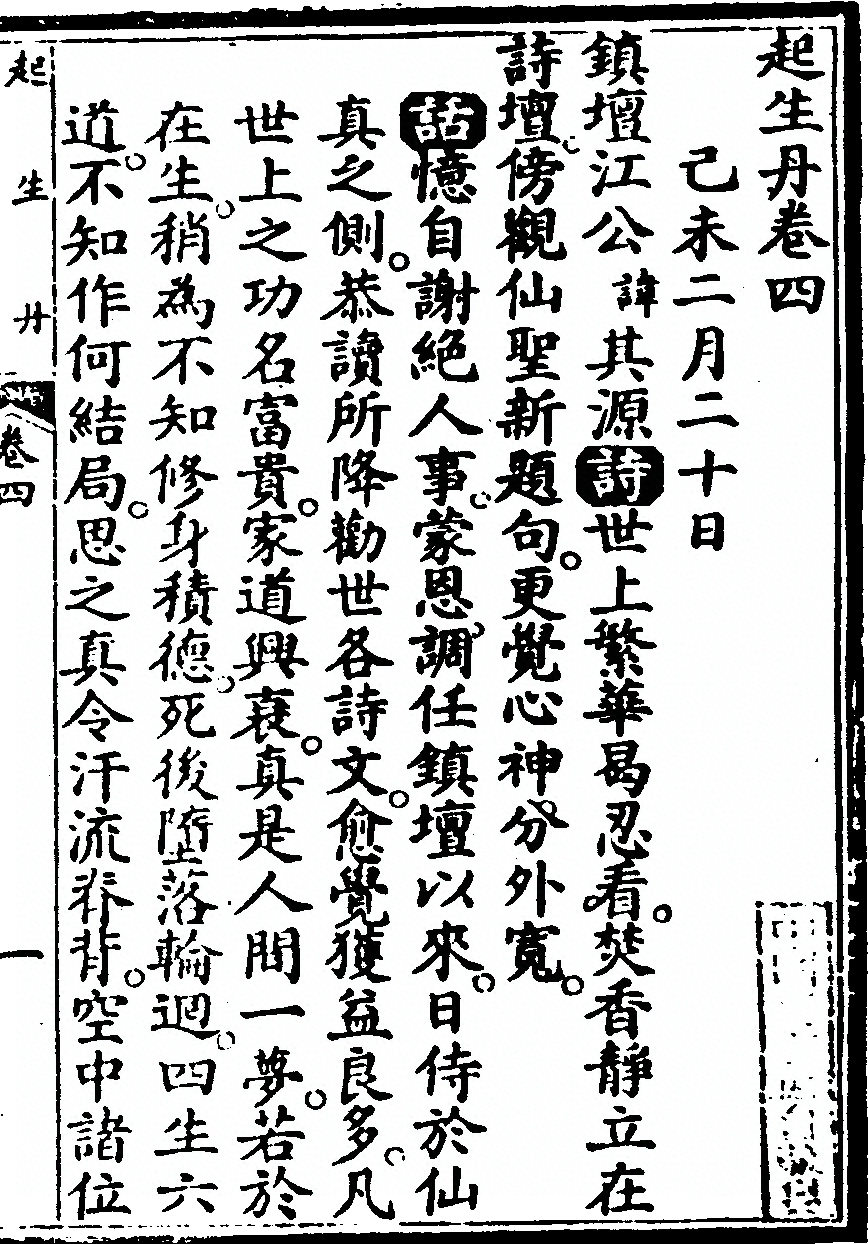 起生丹卷四
己未二月二十日
鎮壇江公諱其源詩世上繁華曷忍看。焚香靜立在
詩壇。傍觀仙聖新題句。更覺心神分外寬。
話憶自謝絕人事。蒙恩調任鎮壇以來。日侍於仙
真之側。恭讀所降勸世各詩文。愈覺獲益良多。凡
世上之功名富貴。家道興衰。真是人間一夢。若於
在生。稍為不知修身積德。死後墮落輪迴。四生六
道。不知作何結局。思之真令汗流脊背。空中諸位
起生丹
卷四
一